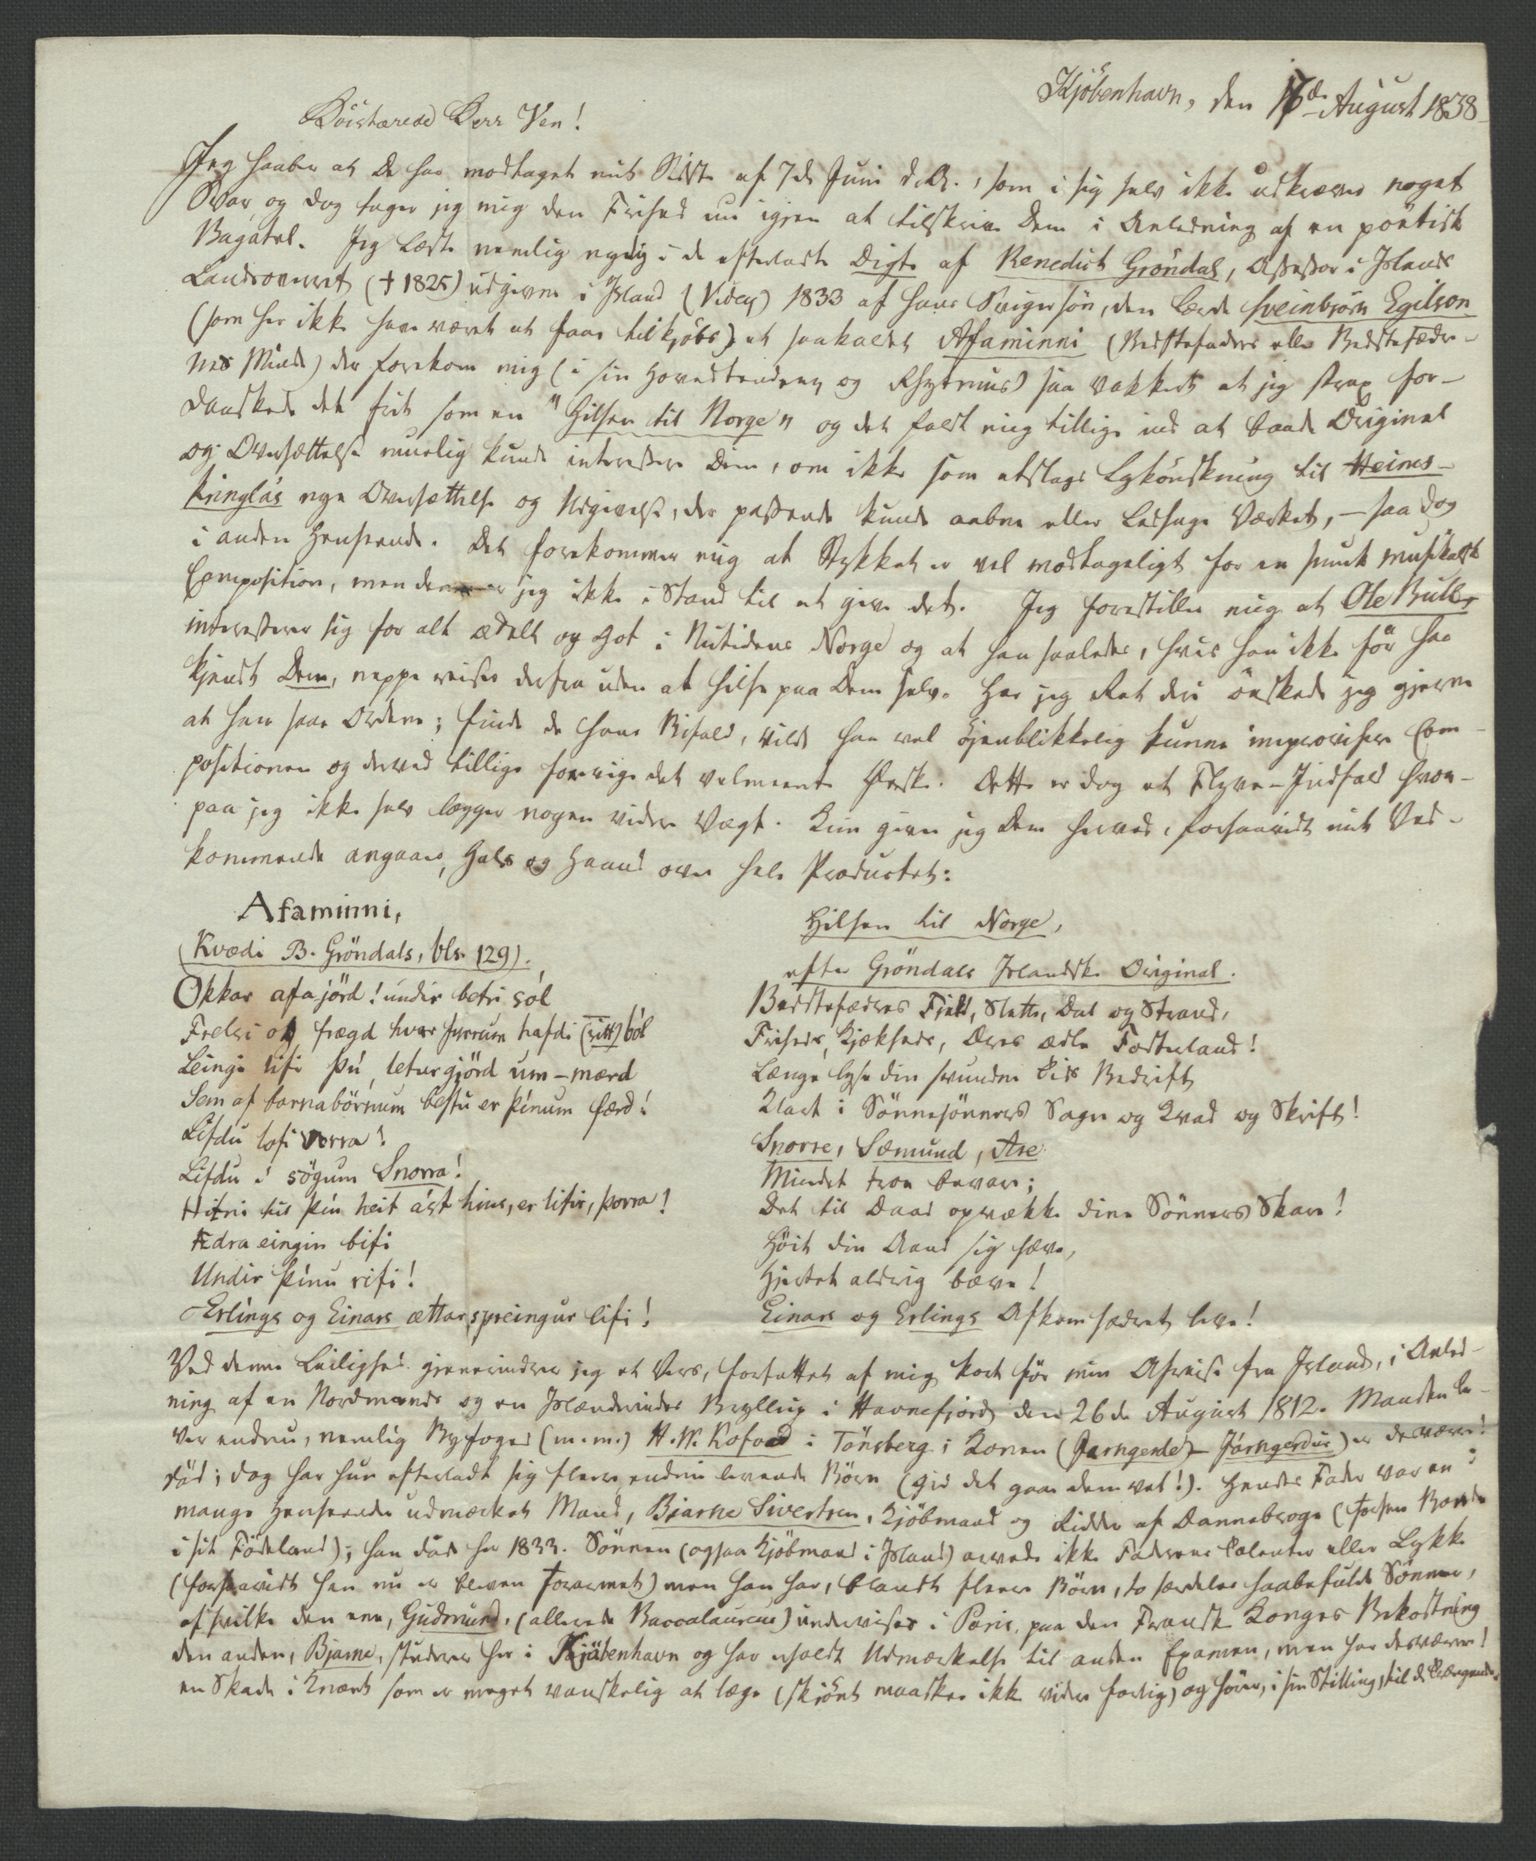 Kjöbenhavn, den 17de August 1838
Höistærede Herr Ven!
Jeg haaber at De har modtaget mit Sidste af 7de Juni d.A., som i sig selv ikke udkræver noget
Svar og dog tager jeg mig den Frihed nu igjen at tilskrive Dem i Anledning af en poëtisk
Bagatel. Jeg læste nemlig nylig i de efterladte Digte af Benedict Gröndal, Assessor i Islands
Landsoverret († 1825) udgivne i Island (Videy) 1833 af hans Svigersön, den lærde Sveinbjörn Egilson
(som her ikke have været at faae tilkjöbs) et saakaldet Afaminni (Bedstefaders eller Bedstefædre-
nes Minde) der forekom mig (i sin Hovedtendenz og Rhytmus) saa vakkert at jeg strax for-
danskede det frit som en "Hilsen til Norge" og det faldt mig tillige ind at baade Original
og Oversættelse muelig kunde interessere Dem, om ikke som etslags Lykönskning til Heims-
kringlas nye Oversættelse og Udgivelse, der passende kunde aabne eller ledsage Værket, – saa dog
i anden Henseende. Det forekommer mig at Stykket er vel modtageligt for en smuk musikalsk
Composition, men den er jeg ikke i Stand til at give det. Jeg forestiller mig at Ole Bull
interesserer sig for alt ædelt og godt i Nutidens Norge og at han saaledes, hvis han ikke för har
kjendt Dem, neppe reiser derfra uden at hilse paa Dem selv. Har jeg Ret deri önskede jeg gjerne
at han saae Ordene; finde de hans Bifald, vilde han vel öjenblikkelig kunne improvisere Com-
positionen og derved tillige forevige det velmeente Önske. Dette er dog et Flyve-Indfald hvor-
paa jeg ikke selv lægger nogen videre Vægt. Kun giver jeg Dem herved, forsaavidt mit Ved-
kommende angaaer, Hals og Haand over hele Productet:
Afaminni,
(Kvædi B. Gröndals, bls. 129).
Okkar afajörd! undir betri sól
Frelsi og frægd hvar fyrrum hafdi (sitt) ból
Leingi lifi þú, letur gjörd um-mærd
Sem af barnabörnum bestu er þínum færd!
Lifdu lofi vorra!
Lifdu í sögum Snorra!
Hitni til þín heit ást hins, er lifir, þorra!
Ædra eingin bifi
Undir þínu rifi!
Erlings og Einars ættar spreingur lifi!
Hilsen til Norge,
efter Gröndals Islandske Original.
Bedstefædres Field, Slette, Dal og Strand,
Friheds, Kjækheds, Deres ædle Fosterland!
Længe lyse din svundne Tids Bedrift
Klart i Sönnesönners Sagn og Kvad og Skrift!
Snorre, Sæmund, Are
Mindet troe bevare;
Det til Daad opvække dine Sönners Skare!
Höit din Aand sig hæve,
Hjertet aldrig bæve!
Einars og Erlings Afkom hædret leve!
Ved denne Leilighed gjenerindrer jeg et Vers, forfattet af mig kort för min Afreise fra Island, i Anled-
ning af en Nordmands og en Islænderindes Bryllup i Havnefjord den 26de August 1812. Manden le-
ver endnu, nemlig Byfoged (m.m.) H. W. Kofoed i Tönsberg; Konen (Jarngerde – Járngerdur) er desværre!
död; dog har hun efterladt sig flere, endnu levende Börn (Gid det gaae dem vel!). Hendes Fader var en i
mange Henseender udmærket Mand, Bjarne Sivertsen, Kjöbmand og Ridder af Dannebroge (
i sit Födeland); han döde her 1833. Sönnen (ogsaa Kjöbmand i Island) arvede ikke Faderens Talenter eller Lykke
(forsaavidt han nu er bleven forarmet) men han har, blandt flere Börn, to særdeles haabefulde Sönner,
af hvilke den ene, Gudmund, (allerede Baccalaureus) underviises i Paris, paa den Franske Konges Bekostning
den anden, Bjarne, studerer her i Kjöbenhavn og har erholdt Udmærkelse til anden Examen, men har desværre!
en Skade i Knæet som er meget vanskelig at læge (skjöndt maaskee ikke videre farlig) og hörer, i sin Stilling, til de Trængende